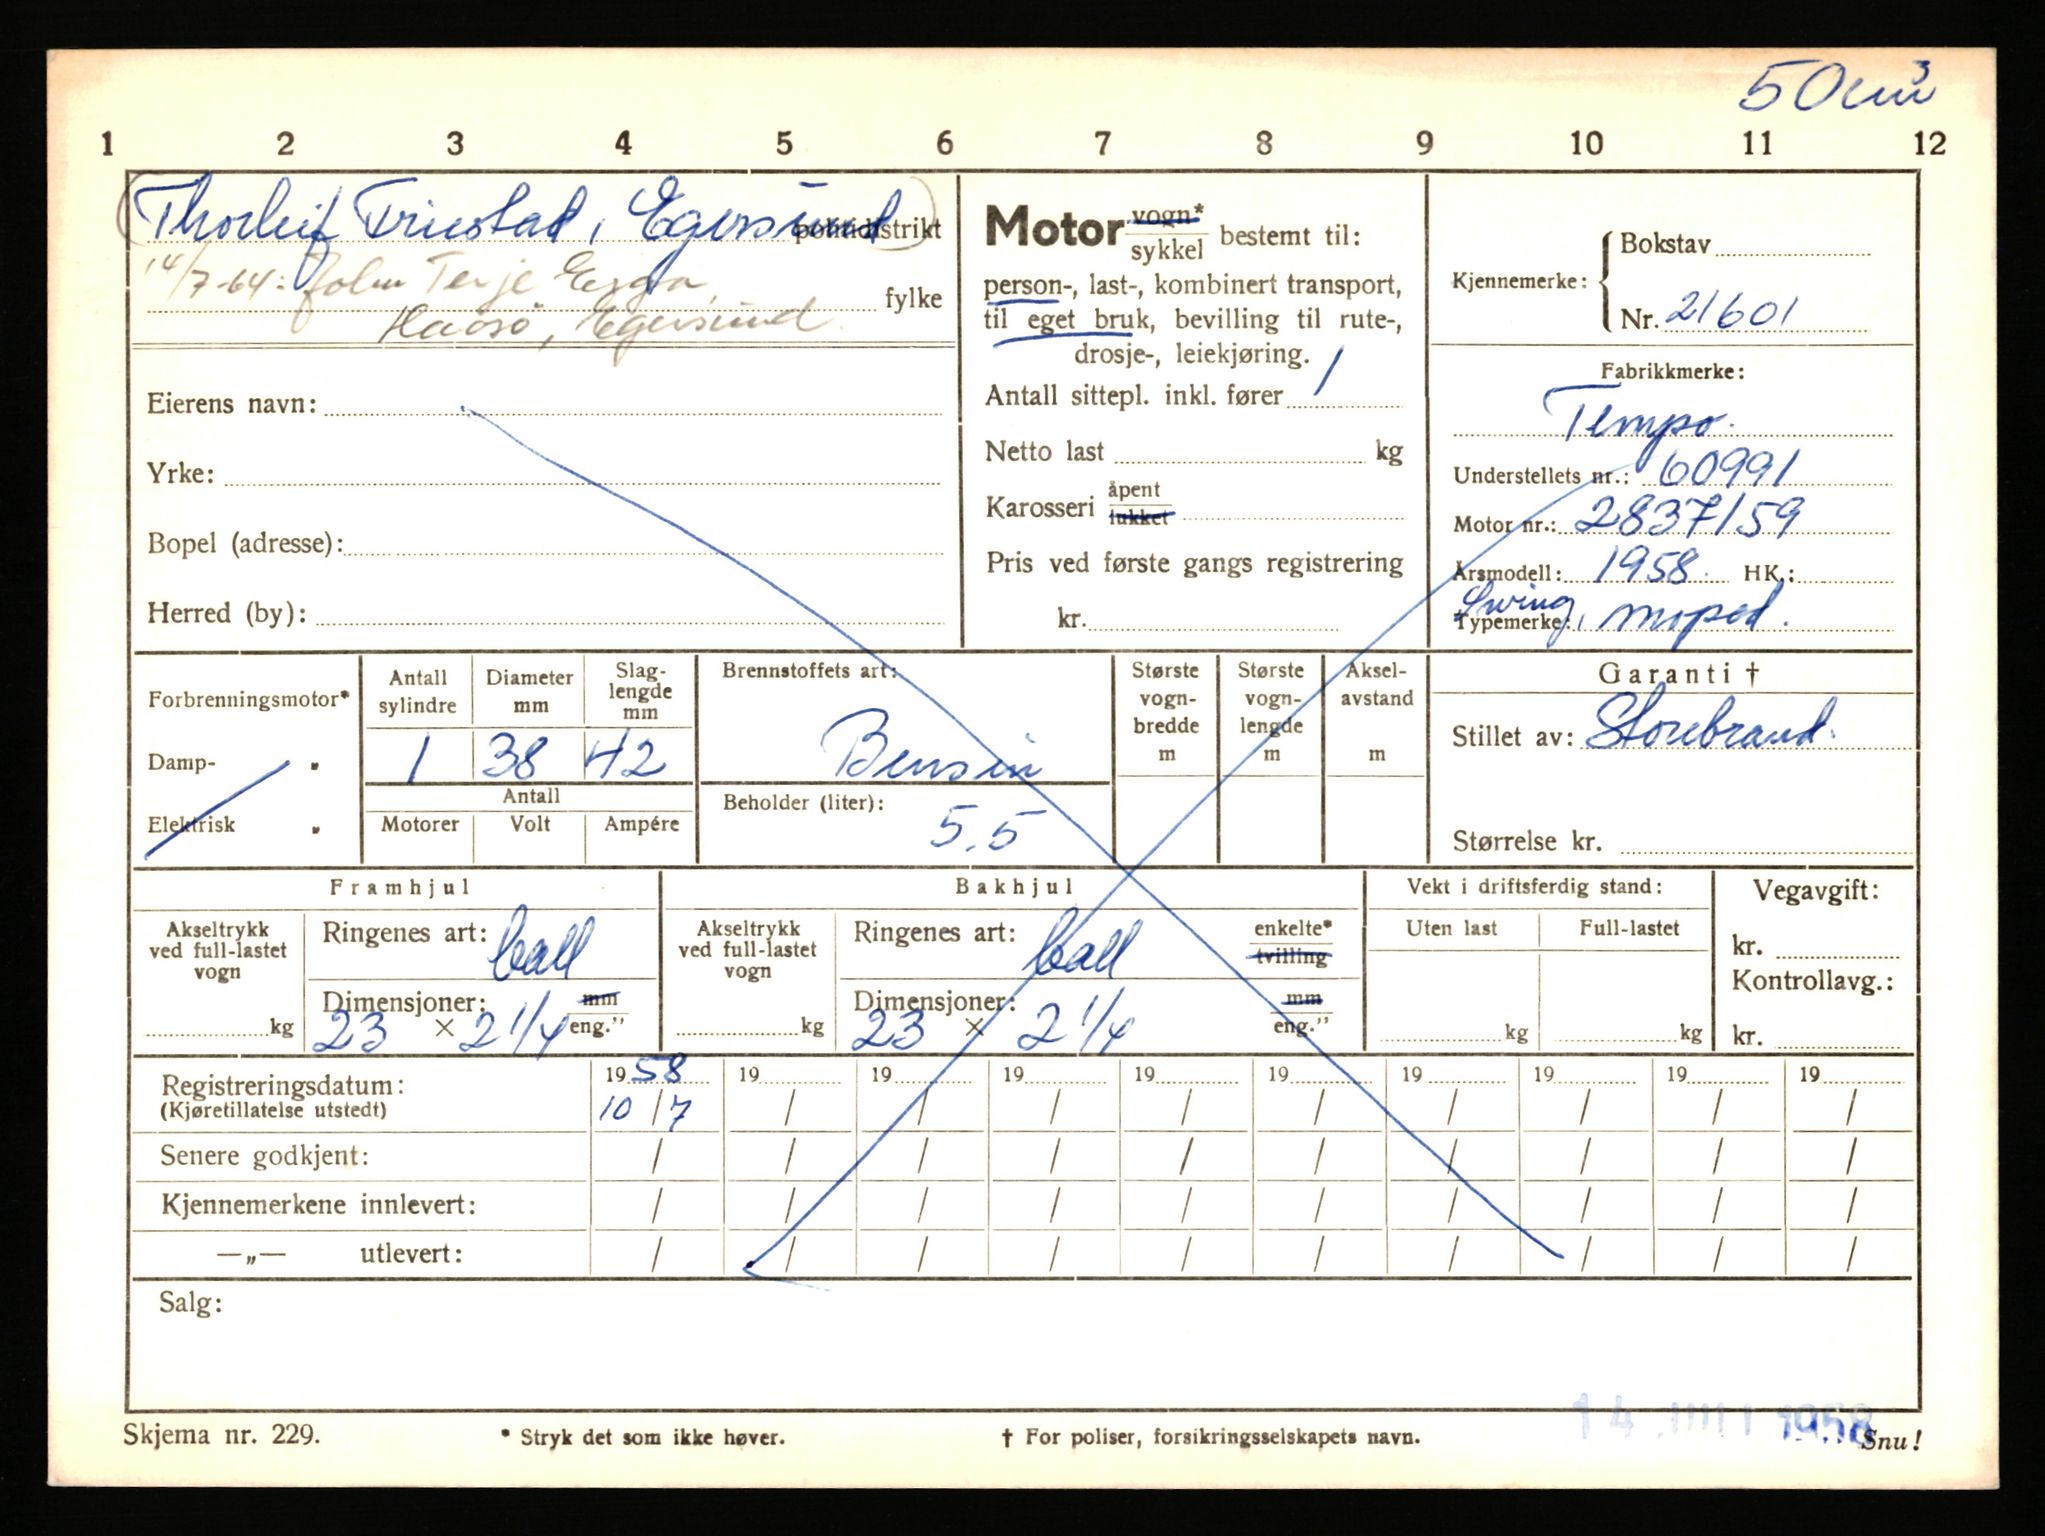 50 cm³
1 2 3 4 5 6 7 8 9 10 11 12
Thorleif Friestad, Egersund politidistrikt
14/7-64: John Terje Egga, fylke
Haasø, Egersund.
Eierens navn:
Yrke:
Bopel (adresse):
Herred (by):
Motor vogn* sykkel bestemt til:
person-, last-, kombinert transport,
til eget bruk, bevilling til rute-,
drosje-, leiekjøring.
Antall sittepl. inkl. fører 1
Netto last kg
Karosseri åpent lukket
Pris ved første gangs registrering
kr.
Kjennemerke: Bokstav
Nr. 21601
Fabrikkmerke:
Tempo.
Understellets nr.: 60991
Motor nr.: 2837159
Årsmodell: 1958. HK.:
Typemerke: Swing, moped.
Forbrenningsmotor*
Damp- "
Elektrisk "
Antall sylindre
Diameter mm
Slag-lengde mm
1 38 42
Antall
Motorer Volt Ampére
Brennstoffets art:
Bensin
Beholder (liter):
5,5
Største vogn-bredde m
Største vogn-lengde m
Aksel-avstand m
Garanti †
Stillet av: Storebrand.
Størrelse kr.
Framhjul
Akseltrykk ved full-lastet vogn
kg
Ringenes art: ball
Dimensjoner: mm
23 × 2 1/4 eng."
Bakhjul
Akseltrykk ved full-lastet vogn
kg
Ringenes art: ball enkelte* tvilling
Dimensjoner: mm
23 × 2 1/4 eng."
Vekt i driftsferdig stand:
Uten last Full-lastet
kg kg
Vegavgift:
kr.
Kontrollavg.:
kr.
Registreringsdatum: 1958 19 19 19 19 19 19 19 19 19
(Kjøretillatelse utstedt) 10/7 / / / / / / / / /
Senere godkjent: / / / / / / / / / /
Kjennemerkene innlevert: / / / / / / / / / /
—„— utlevert: / / / / / / / / / /
Salg:
14 1958
Skjema nr. 229. * Stryk det som ikke høver. † For poliser, forsikringsselskapets navn. Snu!